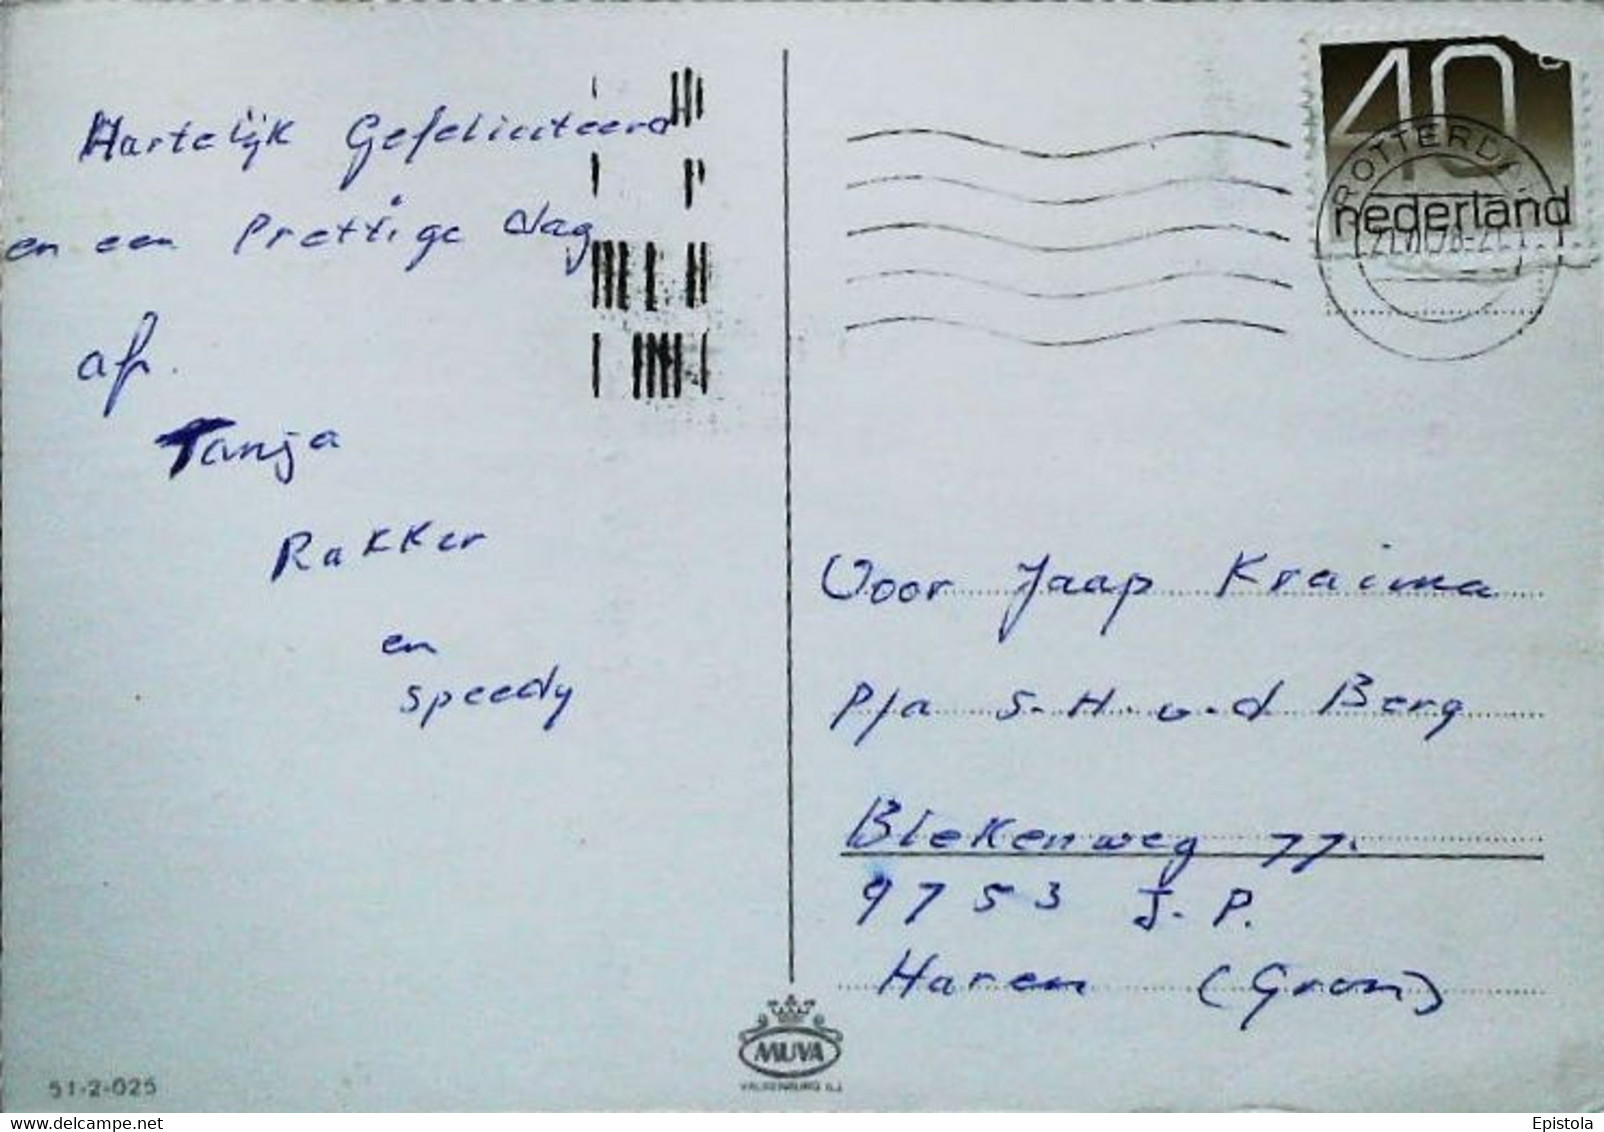 Hartelijk Gefeliciteerd
en een Prettige dag
afz.
Tanja
Rakker
en
speedy
40
nederland
ROTTERDAM
Voor Jaap Kraima
P/a S.H. v.d Berg
Blekenweg 77.
9753 J.P.
Haren (Gron)
MUVA
VALKENBURG
51-2-025
www.delcampe.net
Epistola